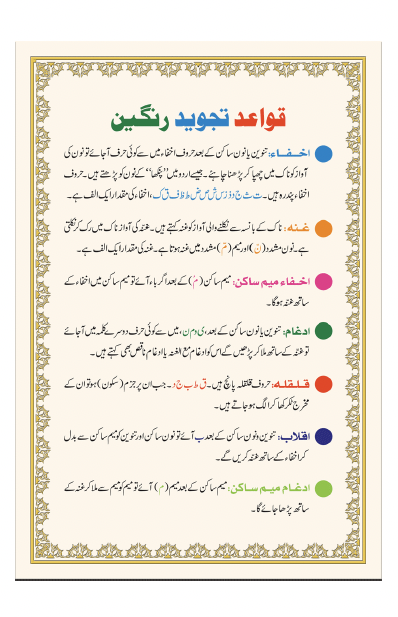 قواعد تجوید رنگین
اخفاء: تنوین یا نون ساکن کے بعد حروف اخفاء میں سے کوئی حرف آجائے تو نون کی
آواز کو ناک میں چھپا کر پڑھنا چاہئے۔ جیسے اردو میں ”پنکھا“ کے نون کو پڑھتے ہیں۔ حروف
اخفاء پندرہ ہیں۔ ت ث ج د ذ ز س ش ص ض ط ظ ف ق ک ، اخفاء کی مقدار ایک الف ہے۔
غنہ: ناک کے بانسہ سے نکلنے والی آواز کو غنہ کہتے ہیں۔ غنہ کی آواز ناک میں رک کر نکلتی
ہے۔ نون مشدد (نّ) اور میم (مّ) مشدد میں غنہ ہوتا ہے۔ غنہ کی مقدار ایک الف ہے۔
اخفاء میم ساکن: میم ساکن (مْ) کے بعد اگر باء آئے تو میم ساکن میں اخفاء کے
ساتھ غنہ ہوگا۔
ادغام: تنوین یا نون ساکن کے بعد، ی و م ن ، میں سے کوئی حرف دوسرے کلمہ میں آجائے
تو غنہ کے ساتھ ملا کر پڑھیں گے اس کو ادغام مع الغنہ یا ادغام ناقص بھی کہتے ہیں۔
قلقلہ: حروف قلقلہ پانچ ہیں۔ ق ط ب ج د ۔ جب ان پر جزم (سکون) ہو تو ان کے
مخرج ٹکر کھا کر الگ ہو جاتے ہیں۔
اقلاب: تنوین و نون ساکن کے بعد ب آئے تو نون ساکن اور تنوین کو میم ساکن سے بدل
کر اخفاء کے ساتھ غنہ کریں گے۔
ادغام میم ساکن: میم ساکن کے بعد میم (م) آئے تو میم کو میم سے ملا کر غنہ کے
ساتھ پڑھا جائے گا۔